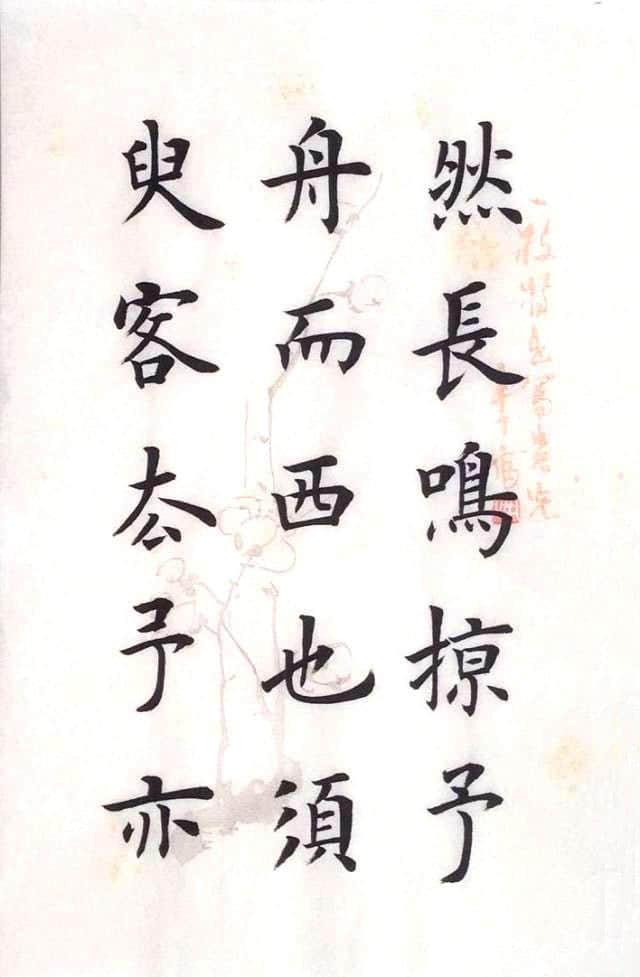 然長鳴掠予
舟而西也須
臾客去予亦